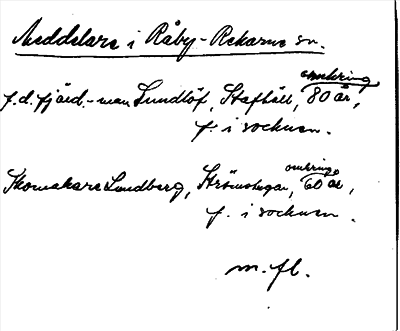 Meddelare i Råby-Rekarne sn.
omkring
f.d. fjärd.-man Lundlöf, Stafhäll, 80 år,
f. i socknen.
omkring
Skomakare Lundberg, Strömstugan, 60 år,
f. i socknen.
m. fl.